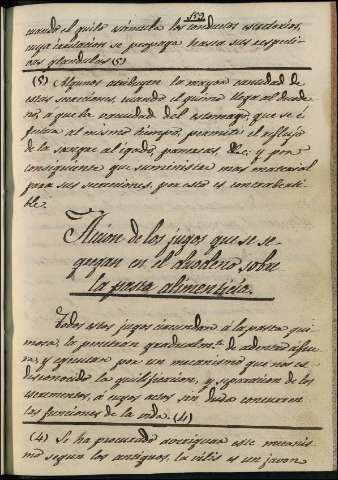 cuando el quilo estimula los conductos escretorios,
cuya irritacion se propaga hasta sus respecti-
vas glandulas (5)
(5) Algunos atribuyen la mayor cantidad de
estas secreciones, cuando el quimo llega al duode-
no, a que la vacuidad del estomago, que se e-
fectua al mismo tiempo, permite el reflujo
de la sangre al igado, pancreas, &c. y por
consiguiente que suministra mas material
para sus secreciones, pero esto es contraberti-
ble.
Acion de los jugos que se se-
gregan en el duodeno sobre
la pasta alimenticia.
Todos estos jugos inundan á la pasta qui-
mosa, la penetran gradualmte. de adentro á fue-
ra, y ejecutan por un mecanismo que nos es
desconocido la quilificacion, y separacion de los
escrementos, á cuyos actos sin duda concurren
las funciones de la vida. (4)
(4) Se ha procurado averiguar este mecanis-
mo segun los antiguos, la vilis es un javon